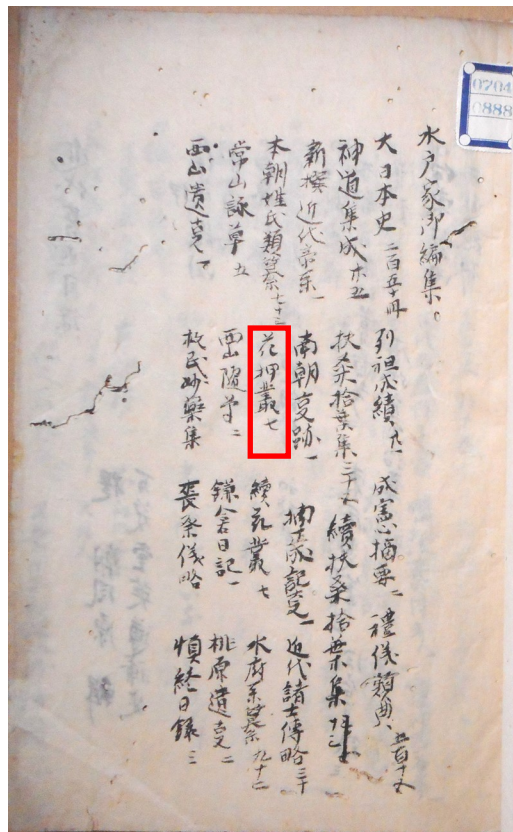 0704
0888
水戸家御編集。
大日本史 二百五十四 列祖成績 廿一 成憲摘要 二 禮儀類典、五百十五
神道集成 十五 扶桑拾葉集 三十五 續扶桑拾葉集
新撰近代帝系一 南朝受跡一 摘要成記 一 近代諸士傳略 三十
本朝姓氏類纂 七十三 花押叢七 續花叢 七 水府系纂 九十二
常山詠草 五 西山随筆 二 鎌倉日記一 桃原遺事 二
西山遺事 一 救民妙藥集 喪祭儀略 慎終日録 三